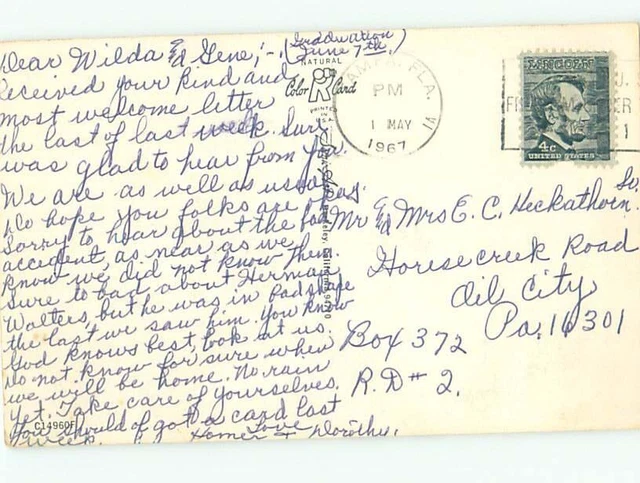 Dear Wilda & Gene;- (Graduation
June 7th,)
Received your kind and
most welcome letter
the last of last week. Sure
was glad to hear from you.
We are as well as usual,
Do hope you folks are O.K.
Sorry to hear about the
accident, as near as we
know we did not know them.
Sure to bad about Herman
Walters, but he was in bad shape
the last we saw him. You know
God knows best, look at us.
Do not know for sure when
we will be home. No rain
yet. Take care of yourselves.
You should of got a card last
week. Love
Homer & Dorothy.
C14960F
NATURAL
Color Card
PRINTED
IN
U.S.A.
Berkeley, California 94710
TAMPA, FLA.
PM
1 MAY
1967
LINCOLN
4c
UNITED STATES
Mr & Mrs E. C. Heckathorn. Sr.
Horsecreek Road
Oil City
Pa. 16301
Box 372
R.D # 2.